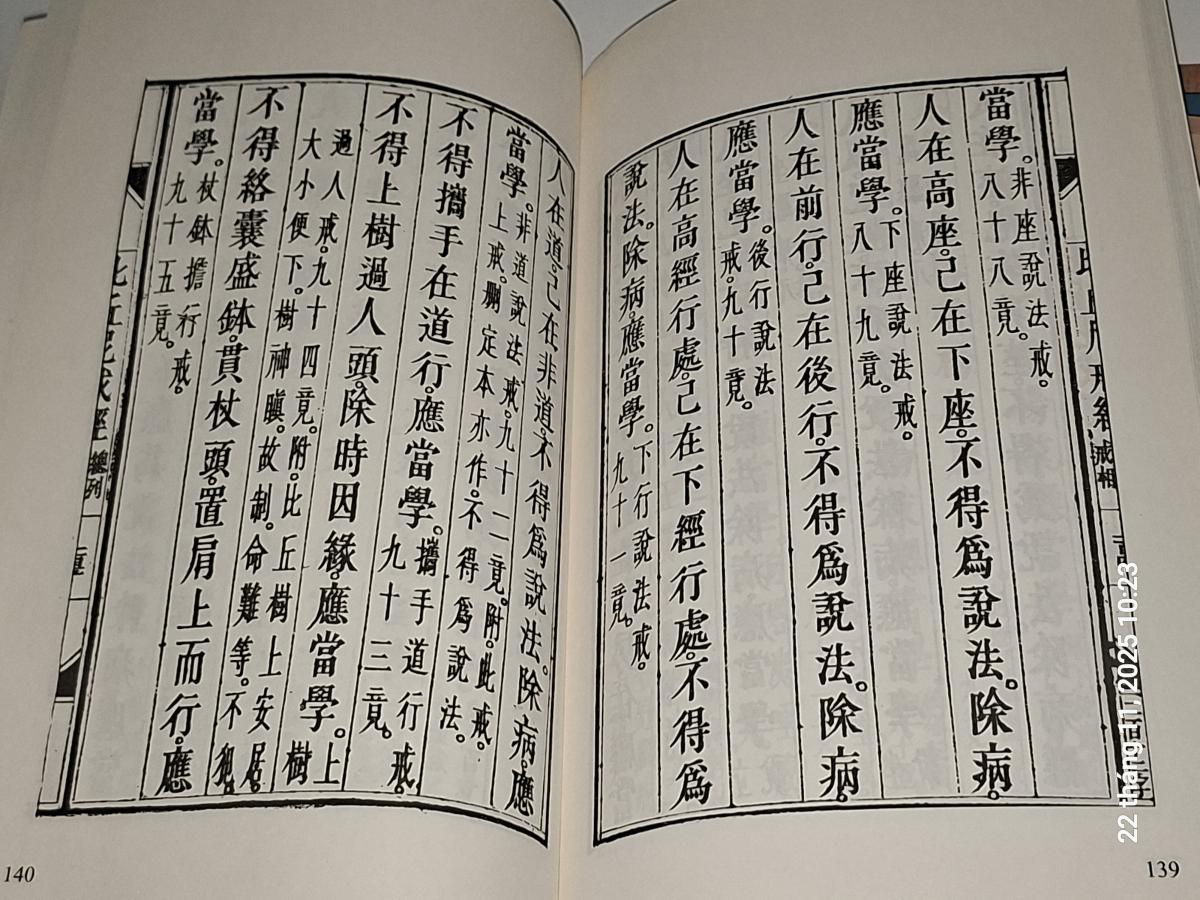 當學。非座說法戒。
八十八竟。
人在高座。己在下座。不得爲說法。除病。
應當學。下座說法戒。
八十九竟。
人在前行。己在後行。不得爲說法。除病。
應當學。後行說法
戒。九十竟。
人在高經行處。己在下經行處。不得爲
說法。除病。應當學。下行說法戒。
九十一竟。
139
人在道。己在非道。不得爲說法。除病。應
當學。非道說法戒。九十二竟。附。此戒。
上戒。刪定本亦作。不得爲說法。
不得攜手在道行。應當學。攜手道行戒。
九十三竟。
不得上樹過人頭。除時因緣。應當學。上樹
過人戒。九十四竟。附。比丘樹上安居。
大小便下。樹神瞋。故制。命難等。不犯。
不得絡囊。盛鉢。貫杖頭。置肩上而行。應
當學。杖鉢擔行戒。
九十五竟。
總列
140
22 tháng 11, 2025 10:23